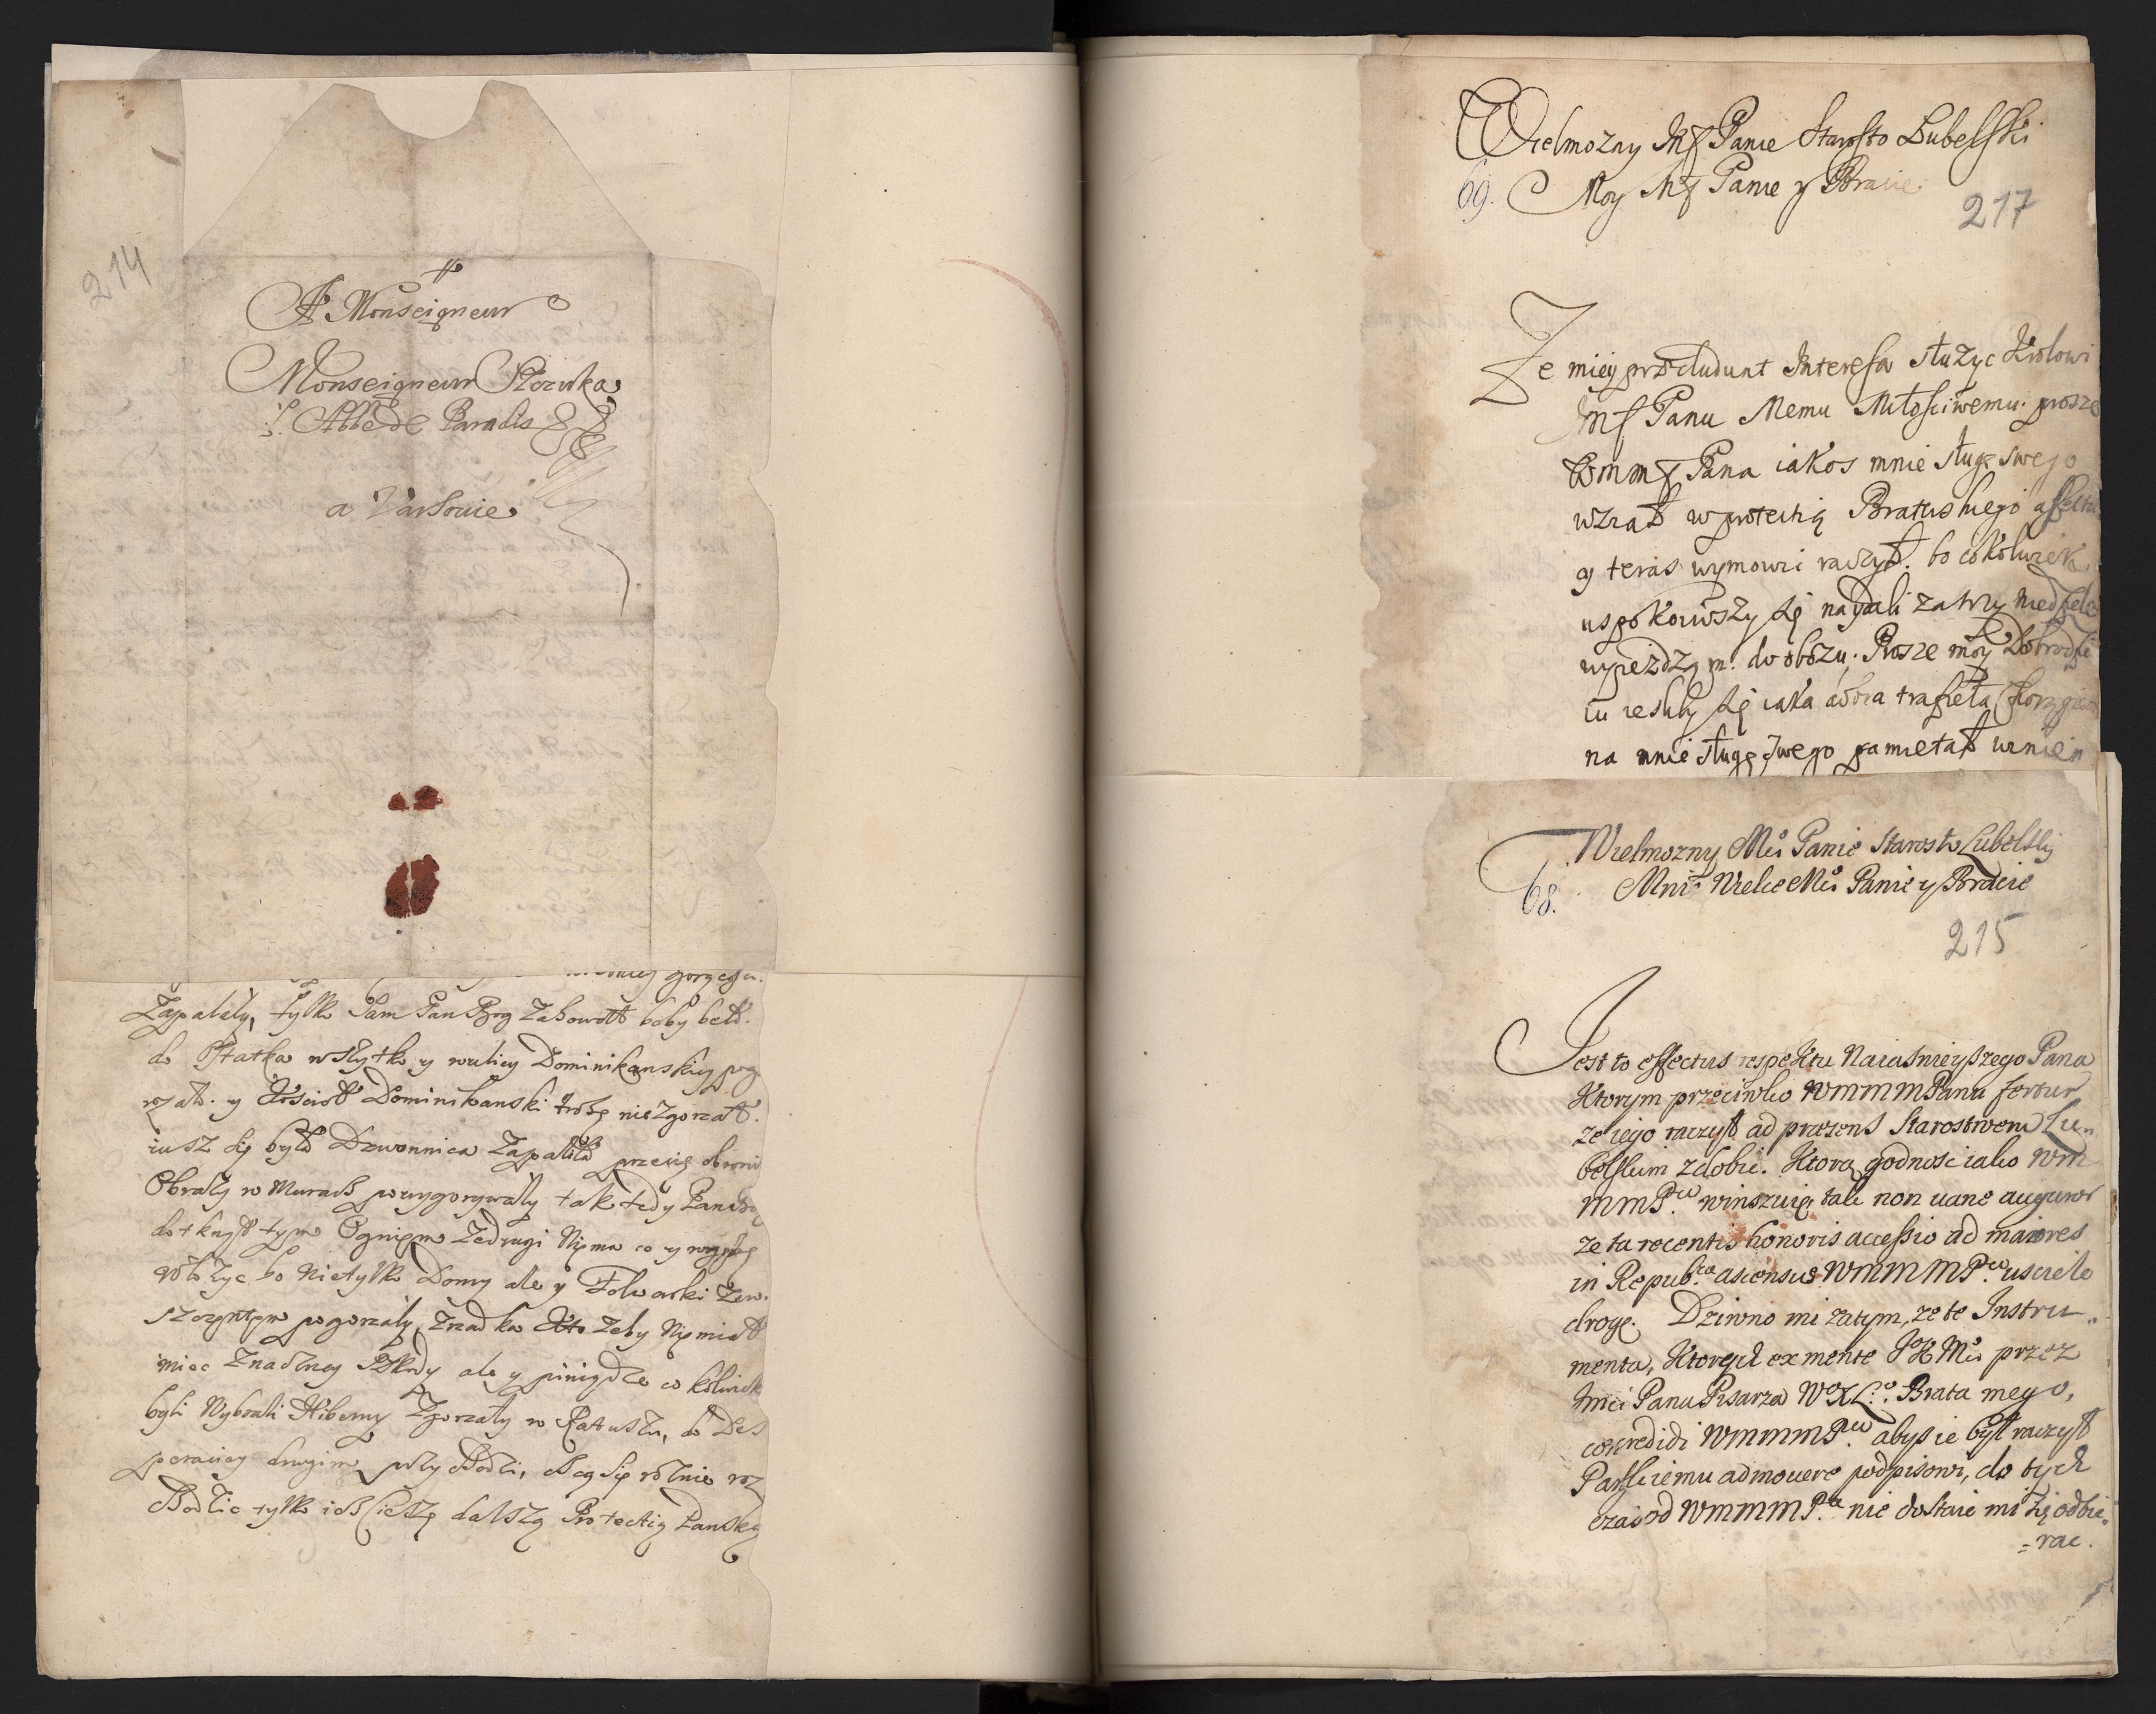 214
A Monseigneur
Monseigneur
l'Abbé de Paradis
a Varsovie
Zapalały, tylko Sam Pan Bog Zahowałł boby beło.
do Ostatka wszytko y w ulicy Dominikanskiy pog
rzało. y Kościoł Dominikanski trohę nie Zgorzał.
iusz się była Dzwonnica Zapaliła przecię obroni
Obrały w Murach powygorywały tak tedy Pan Bog
dotknył tym Ognięm Zedrugi Nięma co y
włożyc bo Nietylko Domy ale y Folwarki Zew
szczęntęm pogorzały, Zrzadka Kto Zeby Nięmiał
miec Znaczney Szkody ale y piniądze co kolwiek
byli Wybrali Hiberny Zgorzały w Ratuszu, do Des
peraciey drugim przychodzi, chcą się rożnie roz
chodzic tylko ich cieszę dalszą Protectią Pańską
Wielmozny Mſ Panie Starosto Lubelski
69. Moy Mſ Panie y Bracie
217
Ze mięy præcludunt Interessa słuzyc Krolowi
Jmſ Panu Memu Miłosciwemu. prosze
Wmmſ Pana iakos mnie sługę swego
wział w protectią Braterskiego affectu
y teras wymowic raczył. bo cokolwiek
uspokoiwszy się naydali za trzy niedziele
wyieżdzam do obozu. Prosze moy Dobrodzie
iu iesliby się iaka dobra trafieła
na mnie sługę swego pamietał
Wielmozny Mſci Panie Starosto Lubelsky
68. Mnie Wielce Mſci Panie y Bracie
215
Jest to effectus respektu Naiasnieyszego Pana
Ktorym przeciwko WMMMPanu fertur
ze iego raczył ad præsens Starostwem Lu„
belskim zdobic. Ktorą godnosc iako WM
MMPu. winszuię tak non uane auguror
ze ta recentis honoris accessio ad maiores
in Republica ascensus WMMMPu. usciele
drogę. Dziwno mi zatym, ze te Instru„
menta, Ktorych ex mente JKMci przez
Jmci Pana Pisarza WXL. Brata mego,
concredidi WMMMPu. abys ie był raczył
Pańskiemu admovere podpisowi, do tych
czas od WMMMPa. nie dostaie mi się odbie„
=rac.